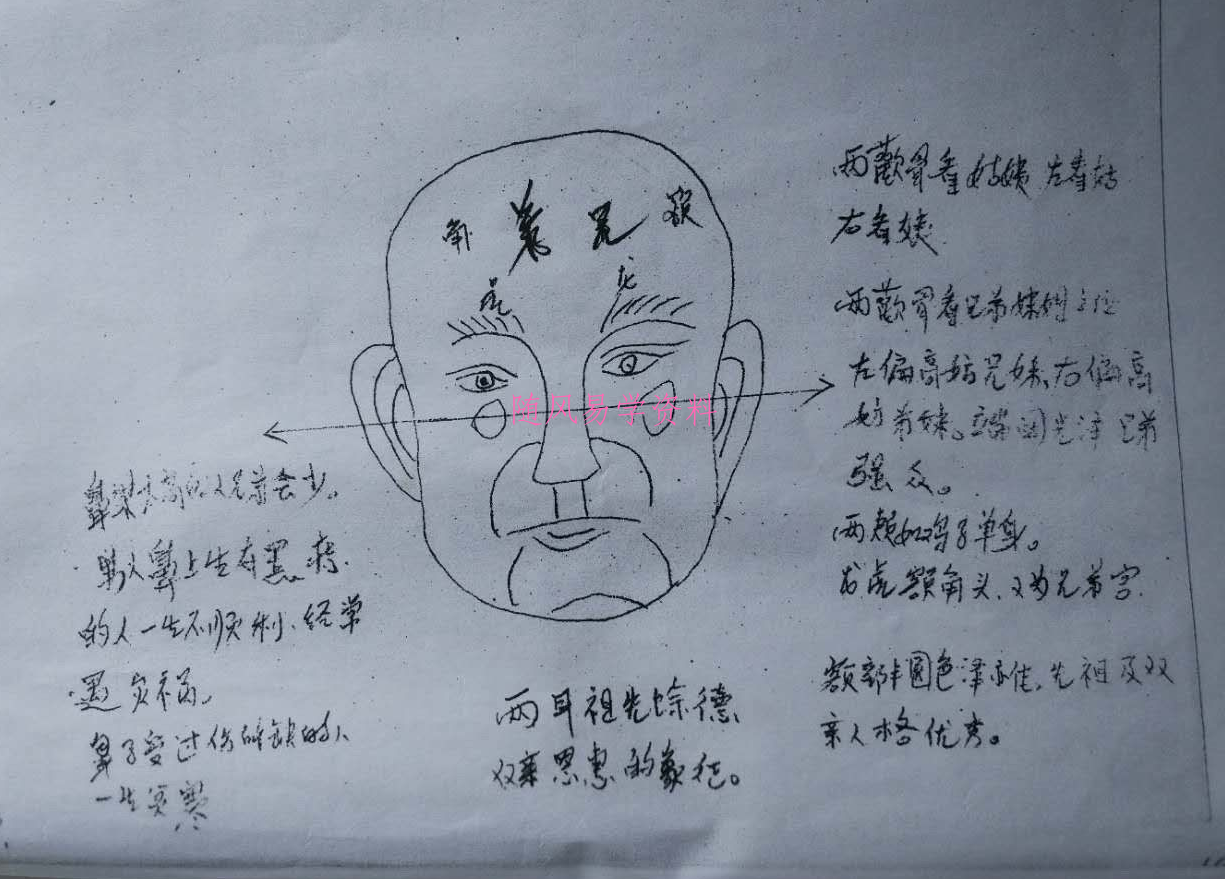 角 兄 额
虎 龙
随风易学资料
两颧骨看姑姨 左看姑
右看姨
两颧骨看兄弟
左偏高妨兄妹、右偏高
妨弟妹。光泽 兄弟
强众。
两颊如鸡子单身。
龙虎额角头、又为兄弟宫.
额部丰圆色泽亦佳、先祖及双
亲人格优秀。
鼻梁高的人兄弟会少。
男人鼻上生有黑痣
的人一生不顺利、经常
遇灾祸。
鼻子受过伤的人
一生
两耳祖先馀德
双亲恩惠的象征。